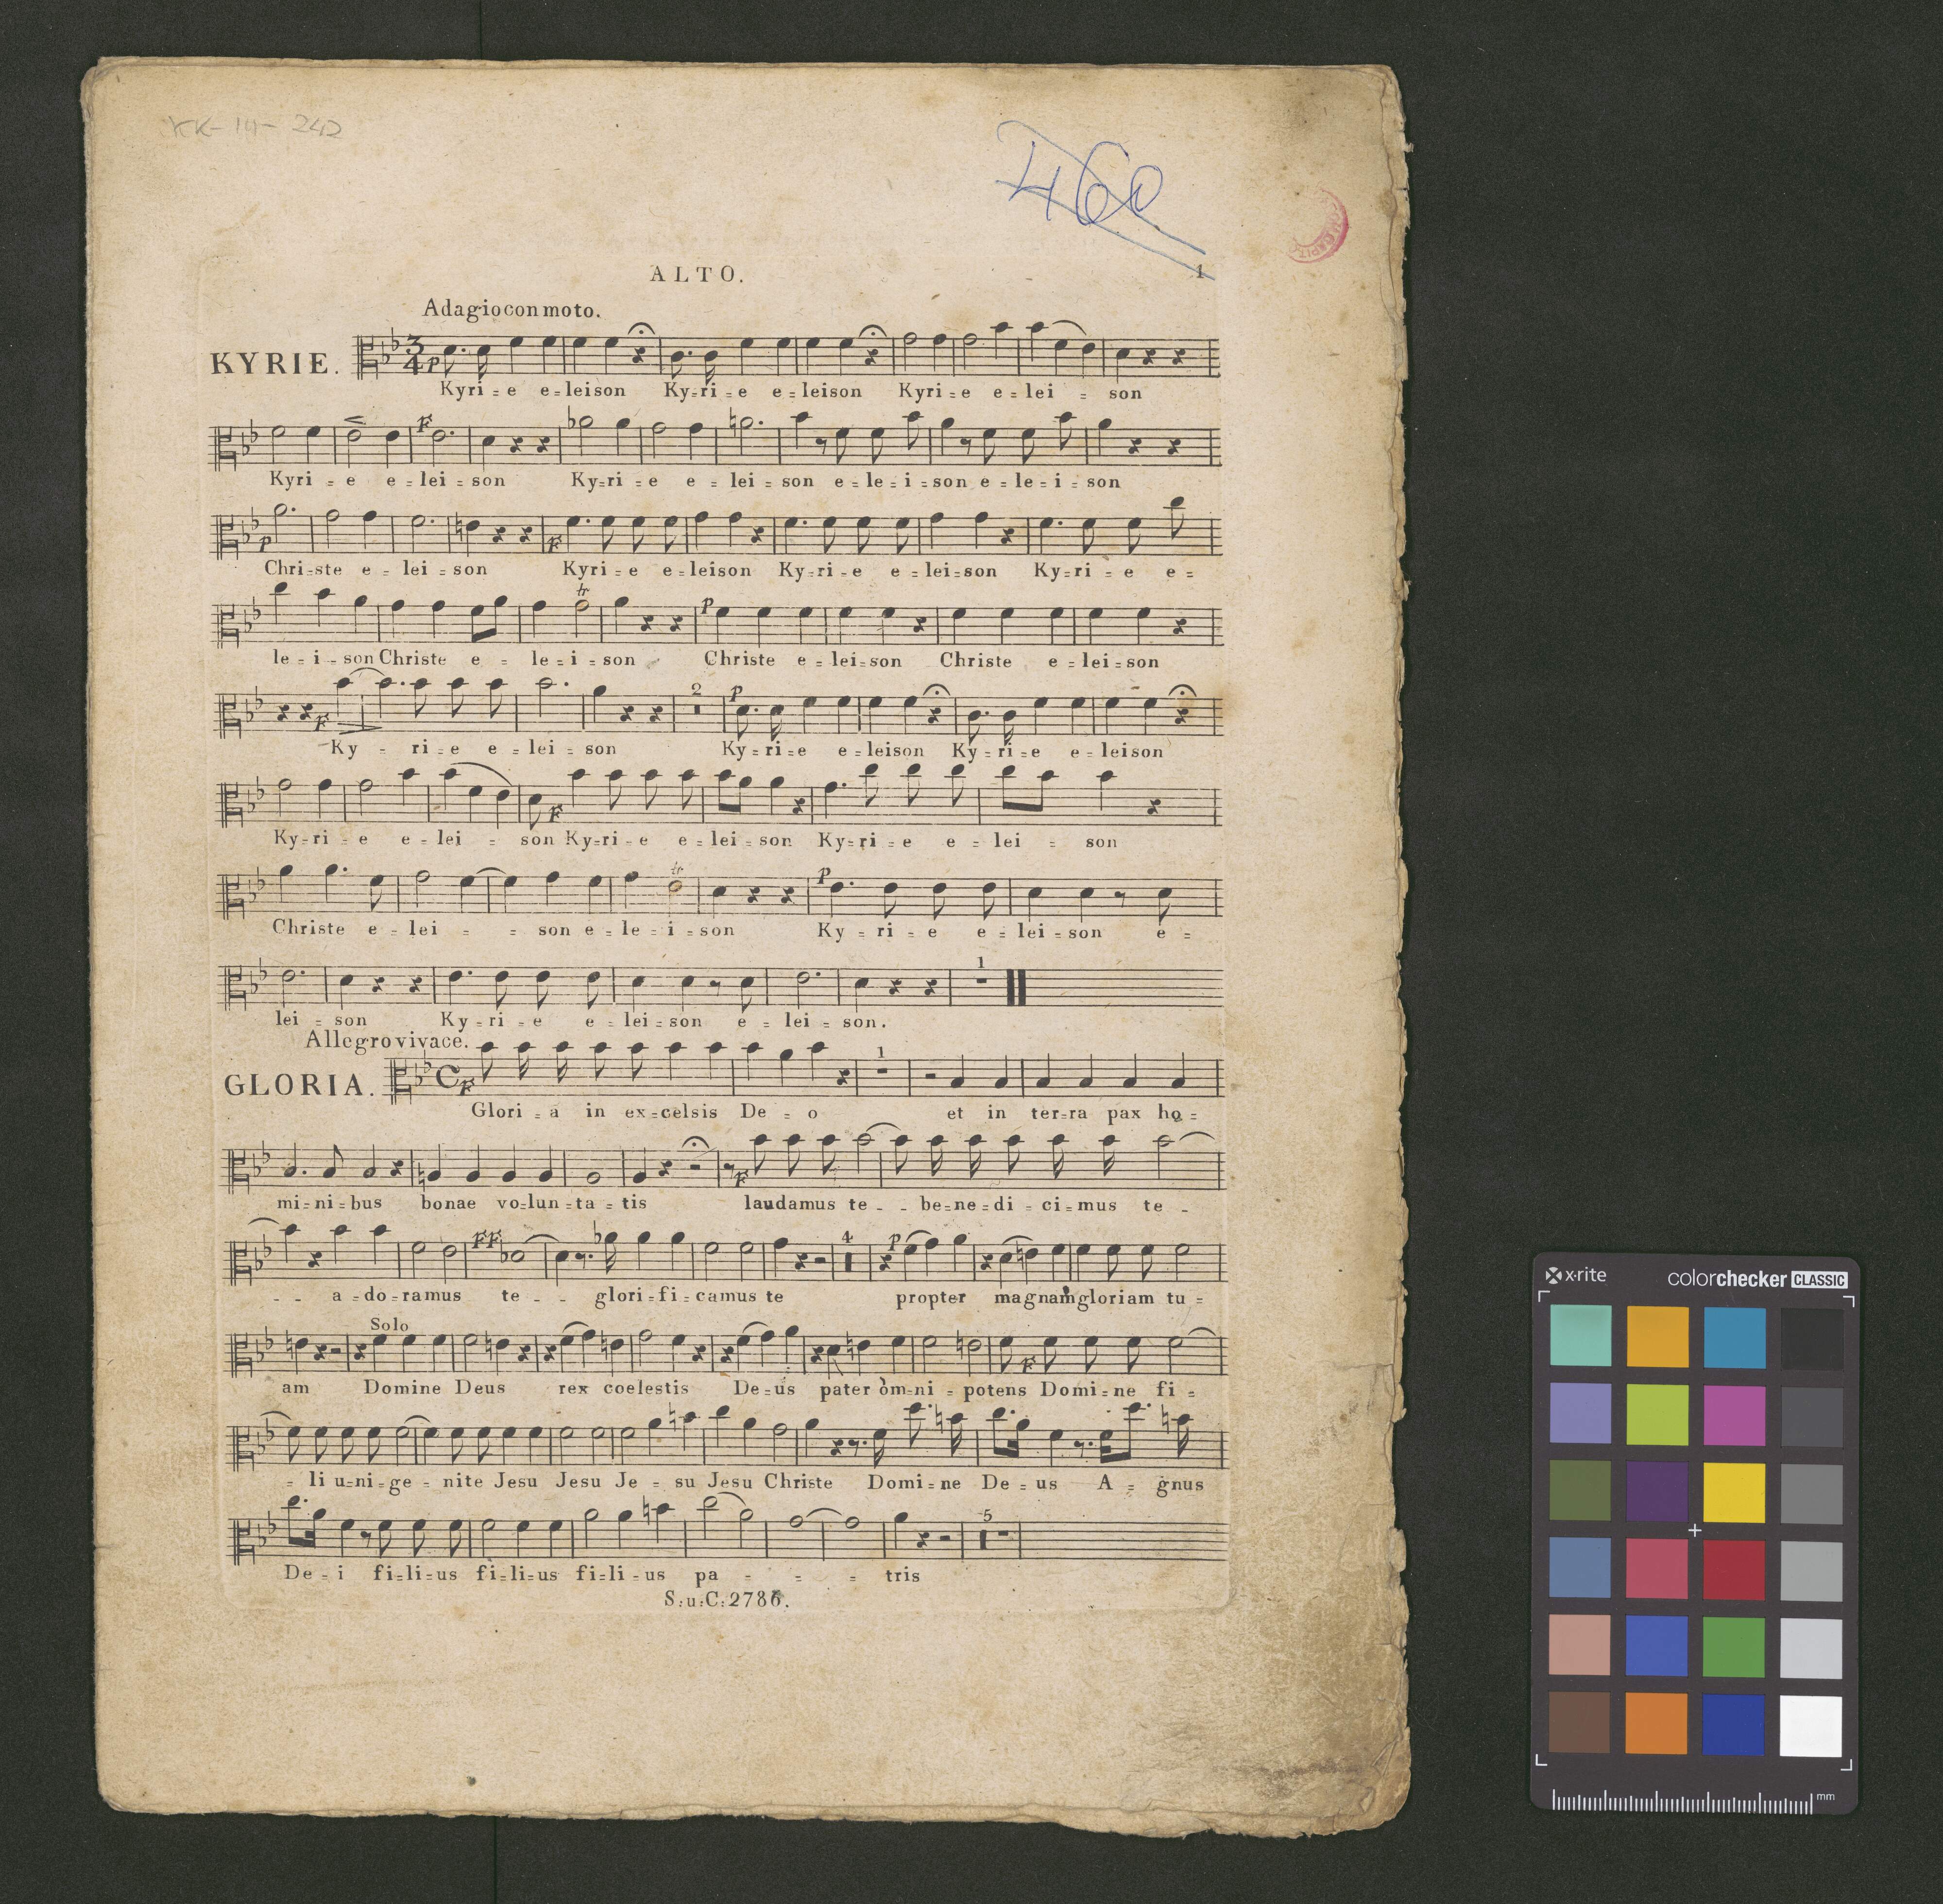 KK-14-242
460
ALTO.
1
Adagio con moto.
KYRIE.
Kyri=e e=leison Ky=ri=e e=leison Kyri=e e=lei = son
Kyri=e e=lei=son Ky=ri=e e=lei=son e=le=i=son e=le=i=son
Chri=ste e=lei=son Kyri=e e=leison Ky=ri=e e=lei=son Ky=ri=e e=
tr
le=i=son Christe e = le=i=son Christe e=lei=son Christe e=lei=son
2
Ky = ri=e e=lei=son Ky=ri=e e=leison Ky=ri=e e=leison
Ky=ri=e e=lei = son Ky=ri=e e=lei=son Ky=ri=e e=lei = son
tr
Christe e=lei = = son e=le=i=son Ky=ri=e e=lei=son e=
1
lei=son Ky=ri=e e=lei=son e=lei=son.
Allegro vivace.
GLORIA.
1
Glori=a in ex=celsis De=o et in ter=ra pax ho=
mi=ni=bus bonae vo=lun=ta=tis laudamus te - - be=ne=di=ci=mus te -
4
- - a=do=ramus te - - glori=fi=camus te propter magnam gloriam tu=
Solo
am Domine Deus rex coelestis De=us pater om=ni=potens Domi=ne fi=
= li u=ni=ge=nite Jesu Jesu Je=su Jesu Christe Domi=ne De=us A=gnus
5
De=i fi=li=us fi=li=us fi=li=us pa = = = tris
S:u:C:2786.
x·rite
colorchecker CLASSIC
mm